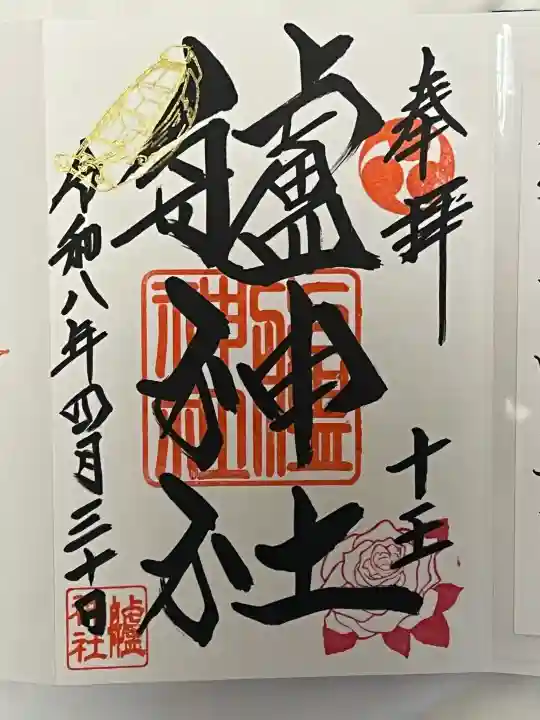 奉拝
十王
艫神社
艫神社
令和八年四月三十日
艫神社